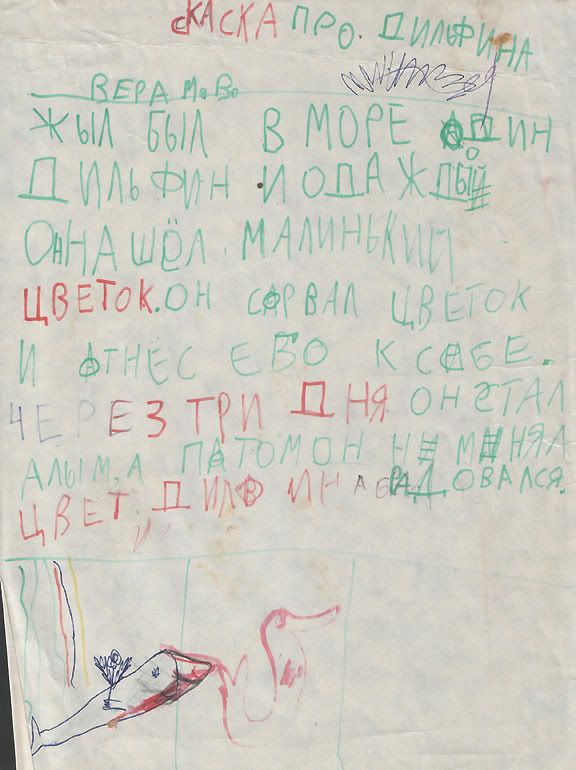 СКАСКА ПРО. ДИЛЬФИНА
ВЕРА М. В.
ЖЫЛ БЫЛ В МОРЕ АДИН
ДИЛЬФИН И ОДАЖДЫЙ
ОН НАШЁЛ. МАЛИНЬКИЙ
ЦВЕТОК. ОН СОРВАЛ ЦВЕТОК
И ОТНЁС ЕВО К СЕБЕ.
ЧЕРЕЗ ТРИ ДНЯ ОН СТАЛ
АЛЫМ, А ПАТОМ ОН НЕ МЕНЯЛ
ЦВЕТ. ДИЛФИН АБРАДОВАЛСЯ.